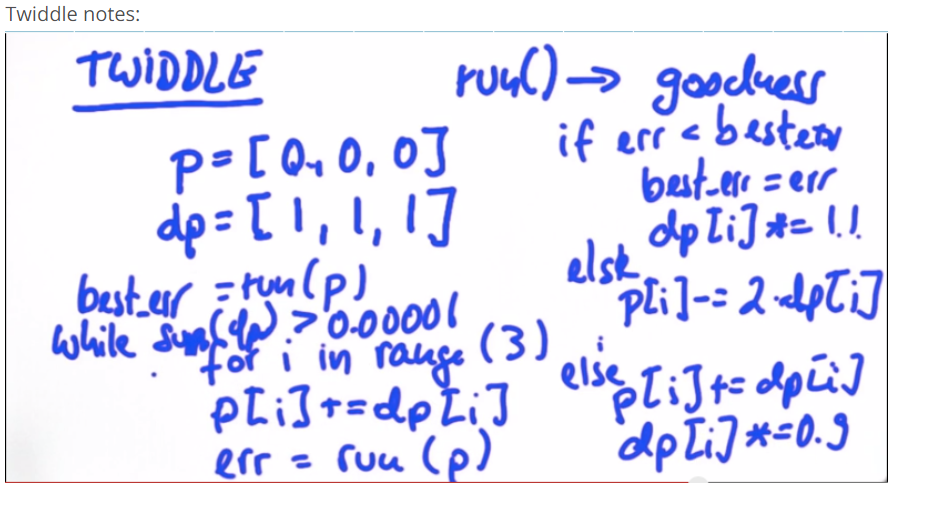 Twiddle notes:
TWiDDLE
p = [0, 0, 0]
dp = [1, 1, 1]
best_err = run(p)
while sum(dp) > 0.00001
for i in range (3)
p[i] += dp[i]
err = run (p)
run() → goodness
if err < best_err
best_err = err
dp[i] *= 1.1
else
p[i] -= 2·dp[i]
else
p[i] += dp[i]
dp[i] *= 0.9